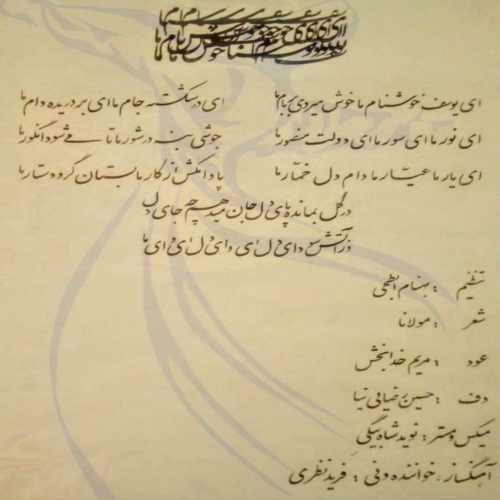 ای یوسف خوشنام ما خوش میروی بر بام ما
ای یوسف خوشنام ما خوش میروی بر بام ما ای درشکسته جام ما ای بر دریده دام ما
ای نور ما ای سور ما ای دولت منصور ما جوشی بنه در شور ما تا می شود انگور ما
ای یار ما عیار ما دام دل خمار ما پا وامکش از کار ما بستان گرو دستار ما
در گل بمانده پای دل جان میدهم چه جای دل
وز آتش سودای دل ای وای دل ای وای ما
تنظیم : بهنام ابطحی
شعر : مولانا
عود : مریم خدابخش
دف : حسین رضایی نیا
میکس و مستر : نوید شاه بیگی
آهنگساز، خواننده ونی : فرید نظری